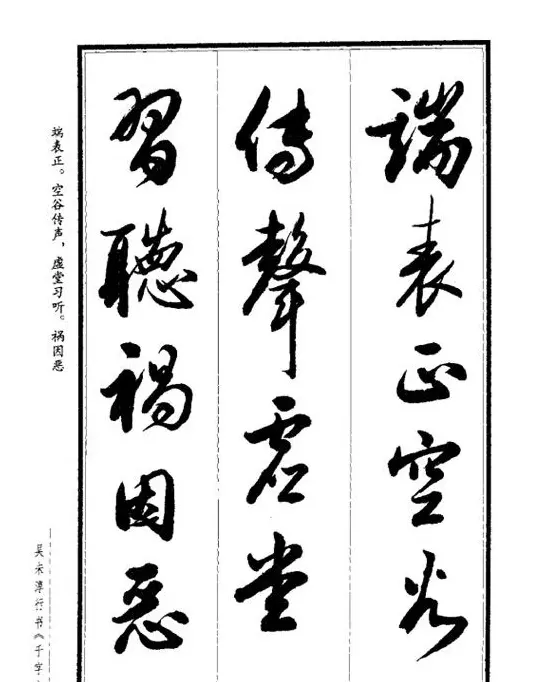 端表正空谷
傳聲虛堂
習聽禍因惡
端表正。空谷传声，虚堂习听。祸因恶
吴未淳行书《千字